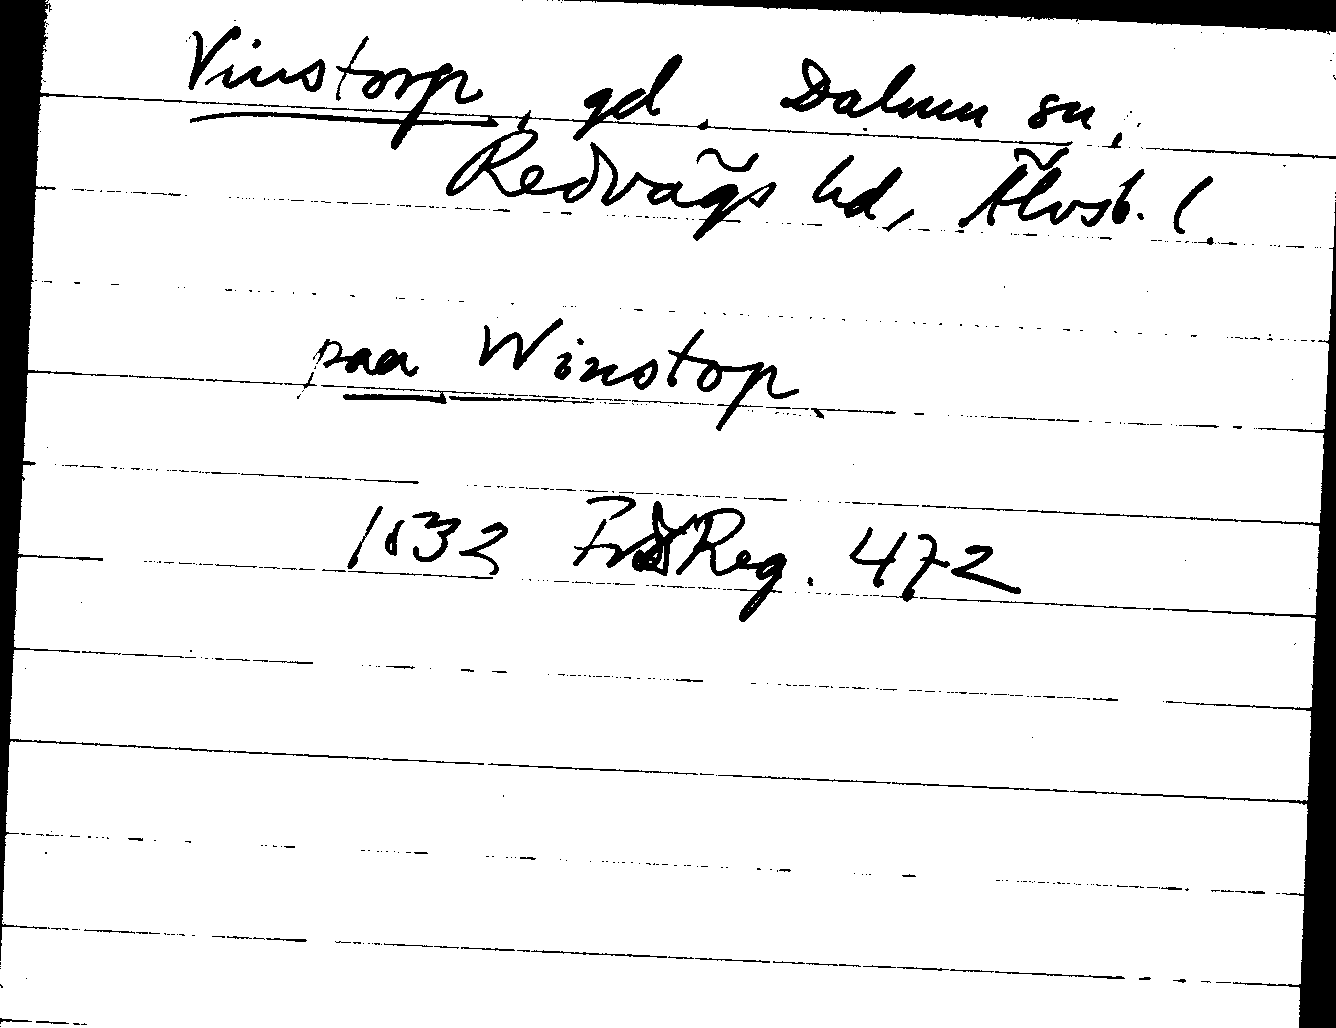 Vinstorp, gd. Dalum sn,
Redvägs hd, Älvsb. l.
paa Winstop.
1532 Fr I Reg. 472